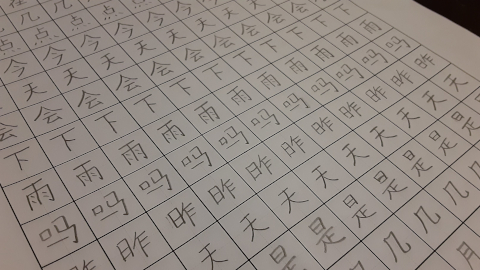 几 几
点 点 点 点
今 今 今 今 今 今
天 天 天 天 天 天 天 天
会 会 会 会 会 会 会 会 会 会
下 下 下 下 下 下 下 下 下 下 下
雨 雨 雨 雨 雨 雨 雨 雨 雨 雨 雨
吗 吗 吗 吗 吗 吗 吗 吗 吗 吗 吗
昨 昨 昨 昨 昨 昨 昨 昨 昨 昨 昨
天 天 天 天 天 天 天 天 天
是 是 是 是 是 是 是
几 几 几 几
月